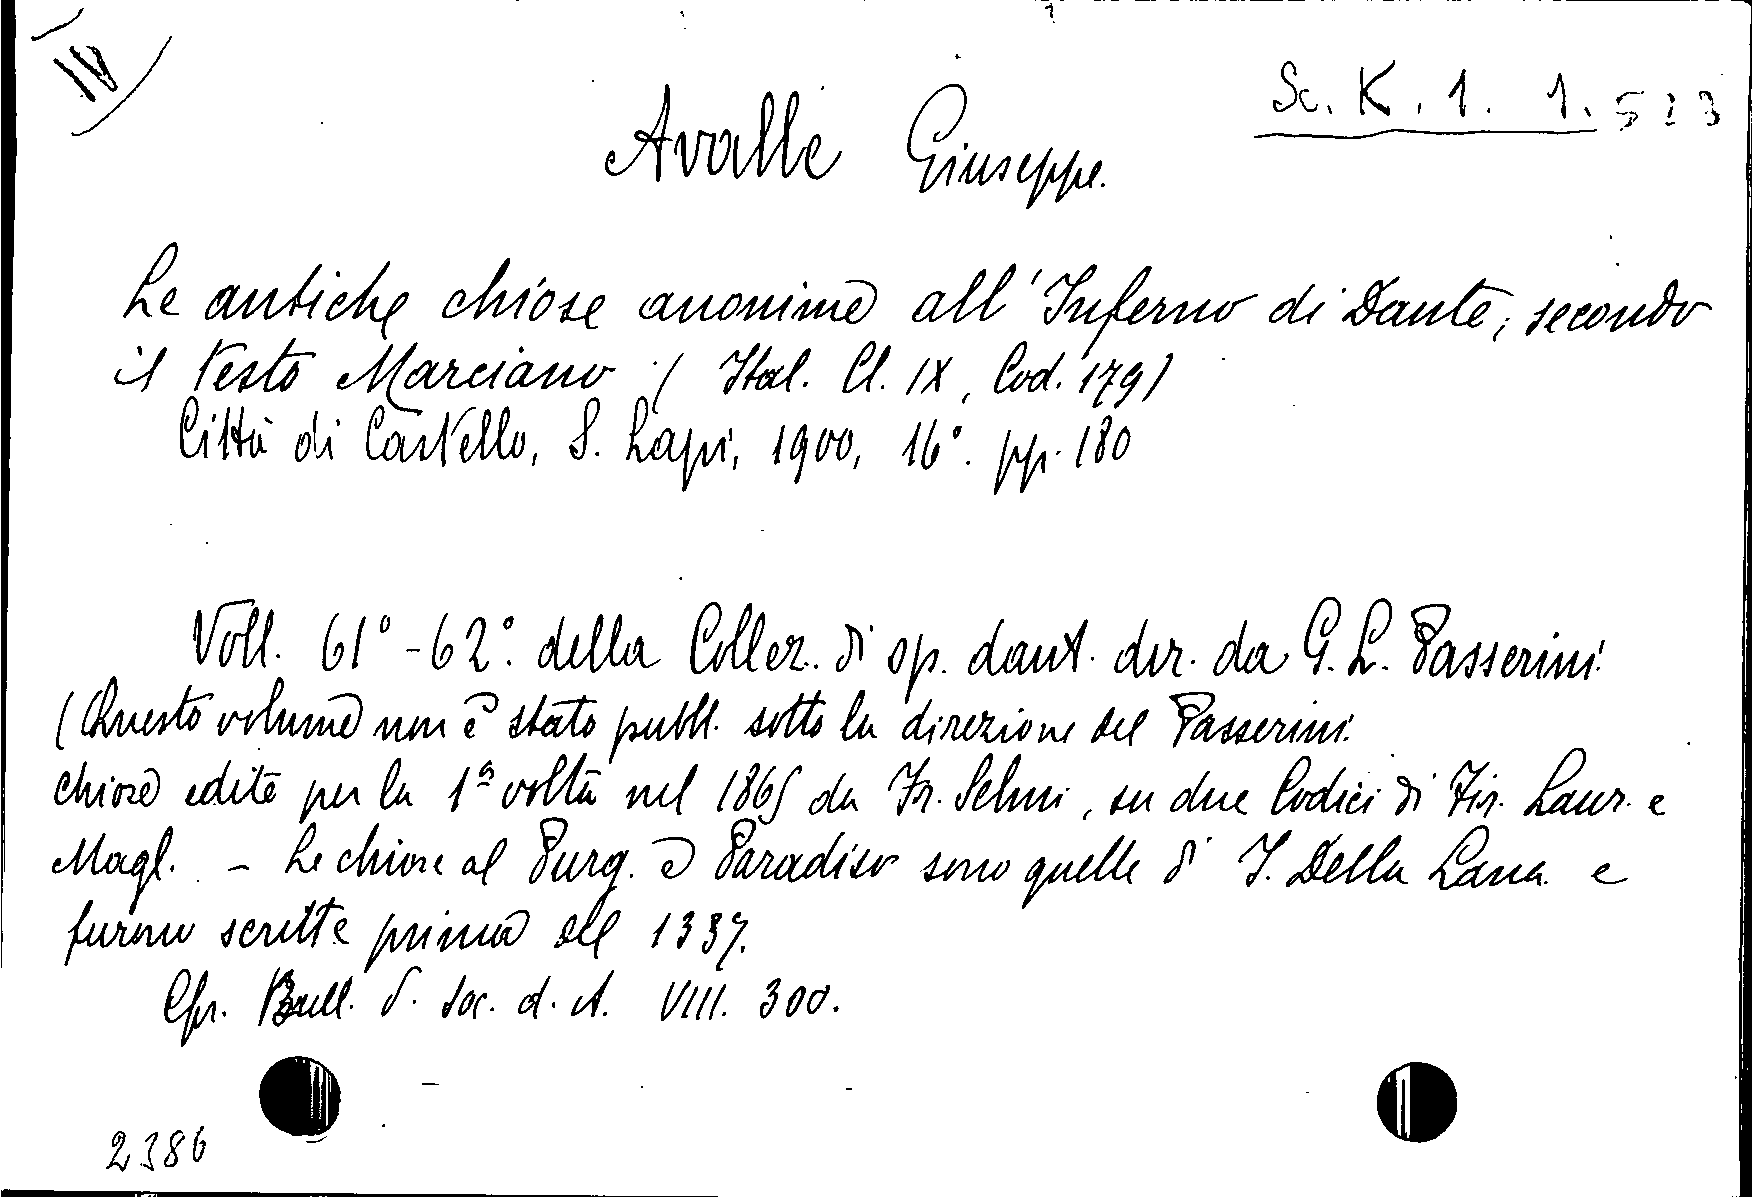 IV
Sc. K. 1. 1. 523
Avalle Giuseppe.
Le antiche chiose anonime all'Inferno di Dante, secondo
il testo Marciano (Ital. Cl. IX, Cod. 179)
Città di Castello, S. Lapi, 1900, 16°. pp. 180
Voll. 61° - 62°. della Collez. di op. dant. dir. da G. L. Passerini.
(Questo volume non è stato pubbl. sotto la direzione del Passerini.
Chiose edite per la 1ª volta nel 1865 da Fr. Selmi, su due Codici di Fir. Laur. e
Magl. - Le chiose al Purg. e Paradiso sono quelle di J. Della Lana e
furono scritte prima del 1337.
Cfr. Bull. d. Soc. d. A. VIII. 300.
2386